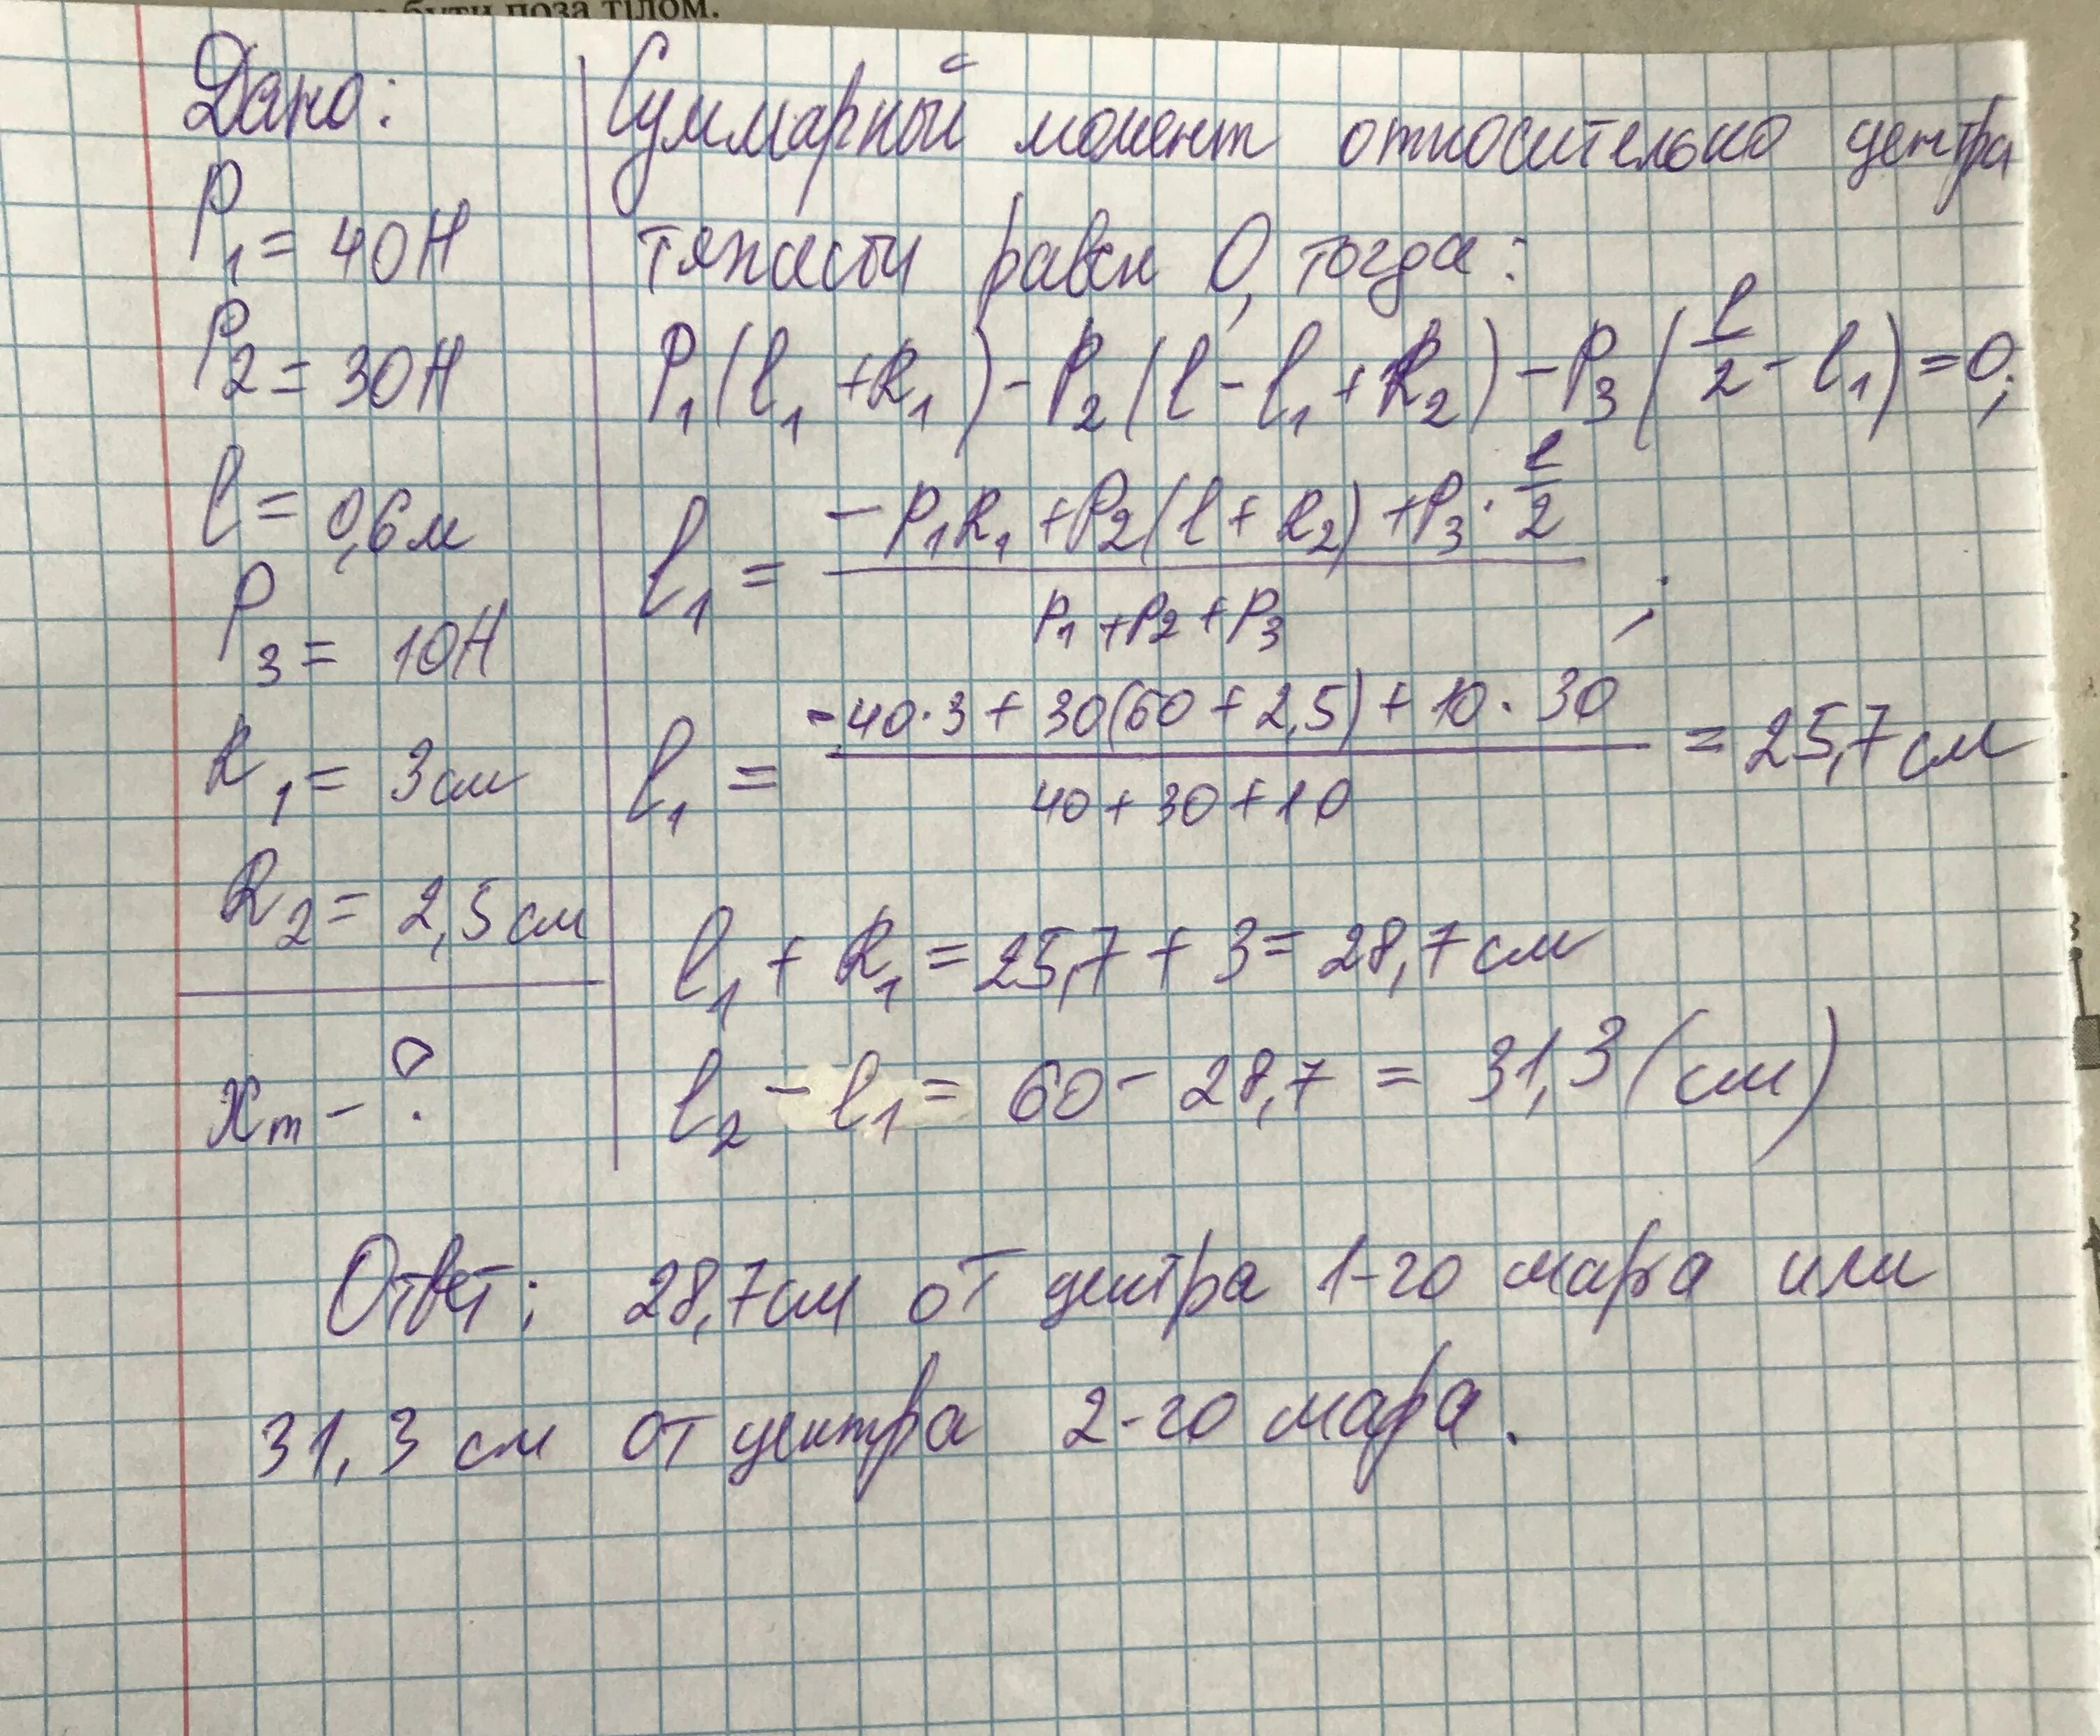 бути поза тілом.
Дано:
P₁ = 40 Н
P₂ = 30 Н
l = 0,6 м
P₃ = 10 Н
R₁ = 3 см
R₂ = 2,5 см
xₘ - ?
Суммарный момент относительно центра
тяжести равен 0, тогда:
P₁(l₁ + R₁) - P₂(l - l₁ + R₂) - P₃(l/2 - l₁) = 0;
l₁ = (-P₁R₁ + P₂(l + R₂) + P₃ · l/2) / (P₁ + P₂ + P₃);
l₁ = (-40·3 + 30(60 + 2,5) + 10 · 30) / (40 + 30 + 10) = 25,7 см
l₁ + R₁ = 25,7 + 3 = 28,7 см
l₂ - l₁ = 60 - 28,7 = 31,3 (см)
Ответ: 28,7 см от центра 1-го мара или
31,3 см от центра 2-го мара.